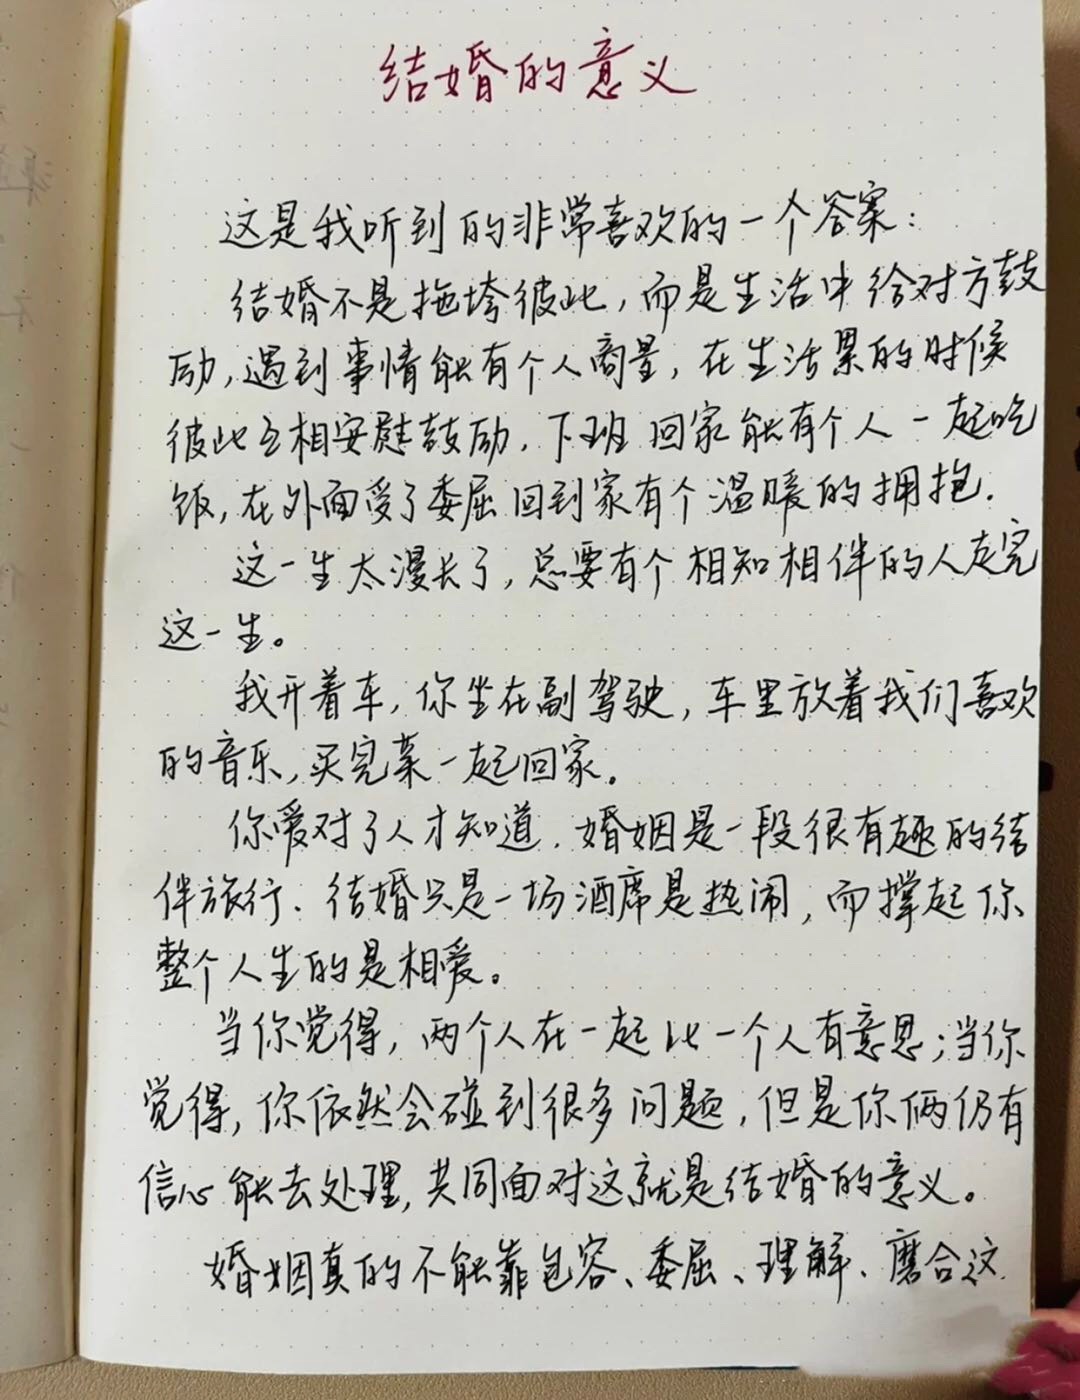 结婚的意义
这是我听到的非常喜欢的一个答案：
结婚不是拖垮彼此，而是生活中给对方鼓
励，遇到事情能有个人商量，在生活累的时候
彼此互相安慰鼓励，下班回家能有个人一起吃
饭，在外面受了委屈回到家有个温暖的拥抱.
这一生太漫长了，总要有个相知相伴的人走完
这一生。
我开着车，你坐在副驾驶，车里放着我们喜欢
的音乐，买完菜一起回家。
你爱对了人才知道，婚姻是一段很有趣的结
伴旅行. 结婚只是一场酒席是热闹，而撑起你
整个人生的是相爱。
当你觉得，两个人在一起比一个人有意思；当你
觉得，你依然会碰到很多问题，但是你俩仍有
信心能去处理，共同面对这就是结婚的意义。
婚姻真的不能靠包容、委屈、理解、磨合这